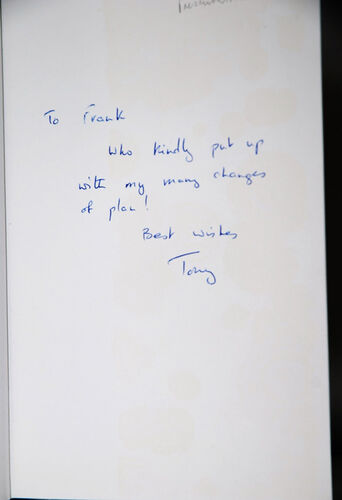 To Frank
who kindly put up
with my many changes
of plan!
Best wishes
Tony